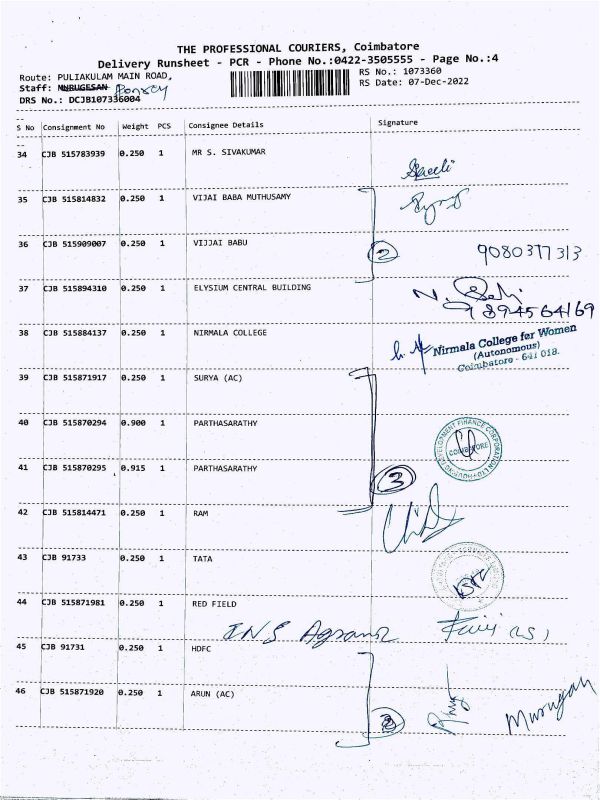 THE PROFESSIONAL COURIERS, Coimbatore
Delivery Runsheet - PCR - Phone No.:0422-3505555 - Page No.:4
Route: PULIAKULAM MAIN ROAD,
RS No.: 1073360
Staff: MURUGESAN
RS Date: 07-Dec-2022
DRS No.: DCJB107336004
S No Consignment No Weight PCS Consignee Details Signature
34 CJB 515783939 0.250 1 MR S. SIVAKUMAR
35 CJB 515814832 0.250 1 VIJAI BABA MUTHUSAMY
36 CJB 515909007 0.250 1 VIJJAI BABU 2 9080377313
37 CJB 515894310 0.250 1 ELYSIUM CENTRAL BUILDING
894564169
38 CJB 515884137 0.250 1 NIRMALA COLLEGE
Nirmala College for Women
(Autonomous)
Coimbatore - 641 018.
39 CJB 515871917 0.250 1 SURYA (AC)
40 CJB 515870294 0.900 1 PARTHASARATHY
DEVELOPMENT FINANCE CORPORATION LTD
COIMBATORE
41 CJB 515870295 0.915 1 PARTHASARATHY 3
42 CJB 515814471 0.250 1 RAM
43 CJB 91733 0.250 1 TATA
44 CJB 515871981 0.250 1 RED FIELD
INS Agrani
45 CJB 91731 0.250 1 HDFC
46 CJB 515871920 0.250 1 ARUN (AC)
Murugan